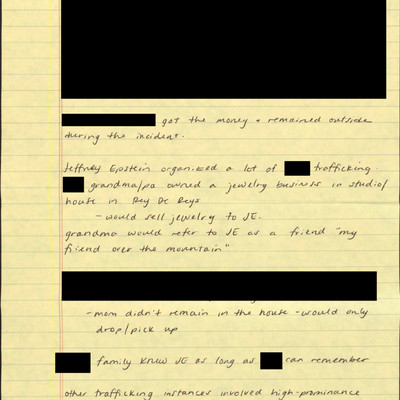 got the money + remained outside
during the incident.
Jeffrey Epstein organized a lot of trafficking
grandma/pa owned a jewelry business in studio/
house in Rey De Reys
- would sell jewelry to JE.
grandma would refer to JE as a friend "my
friend over the mountain"
- mom didn't remain in the house - would only
drop/pick up
family knew JE as long as can remember
other trafficking instances involved high-prominance